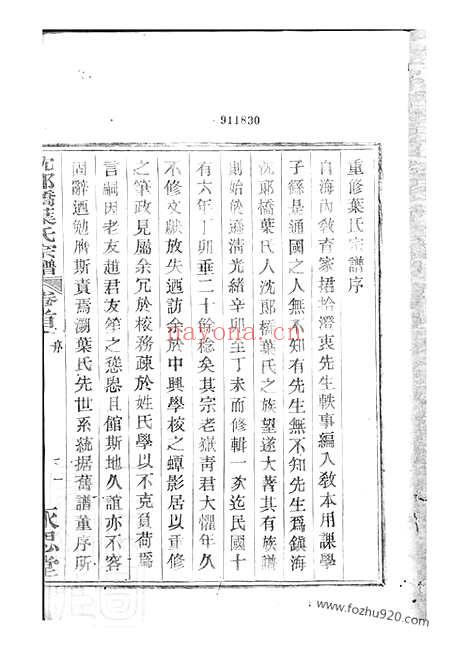 911830
重修葉氏宗譜序
自海內敎育家裙於澄衷先生軼事編入敎本用課學
子繇是通國之人無不知有先生無不知先生爲鎮海
沈郎橋葉氏人沈郎橋葉氏之族望遂大著其有族譜
則始於遜淸光緒辛卯至丁未而修輯一次迄民國十
有六年丁卯垂二十餘稔矣其宗老嶽靑君大懼年久
不修文獻放失迺訪余於中興學校之蟫影居以重修
之筆政見屬余冗於校務疎於姓氏學以不克負荷爲
言嗣因老友趙君友笙之慫恿且館斯地久誼亦不容
固辭迺勉膺斯責焉溯葉氏先世系統据舊譜董序所
沈郎橋葉氏宗譜
卷首
序
永思堂
nayona.cn
www.fozhu920.com